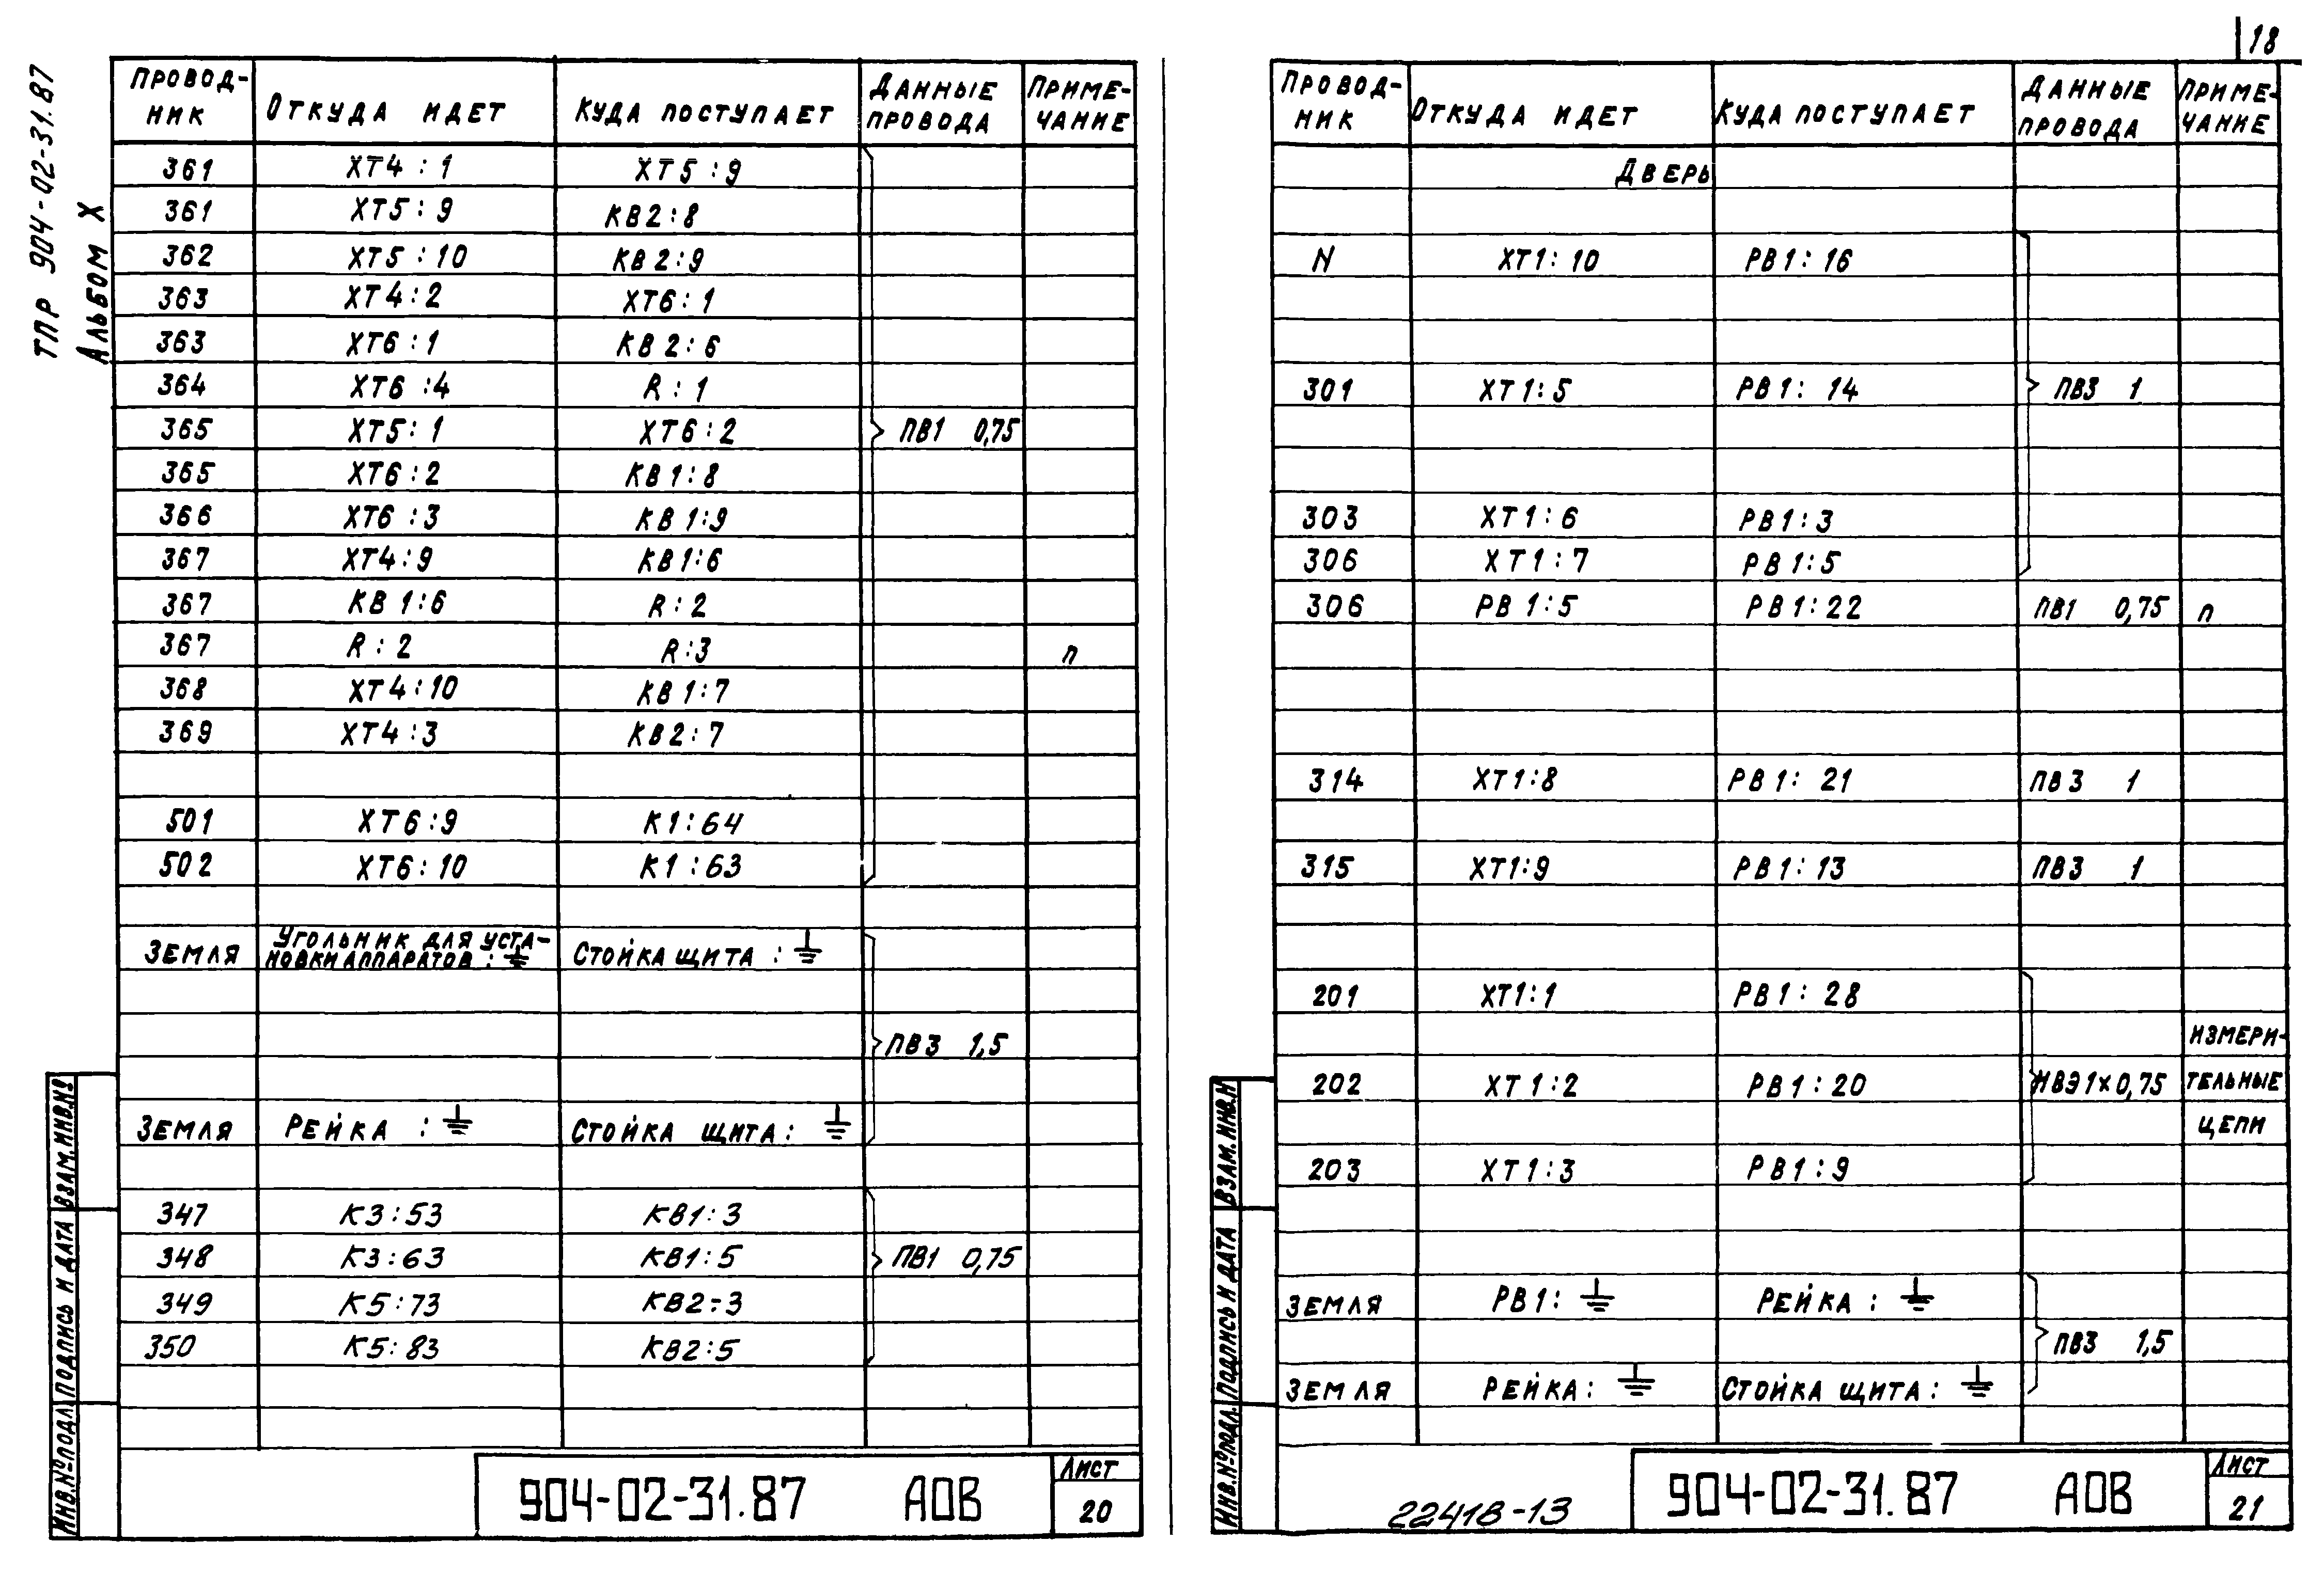 18
ТПР 904-02-31.87
Альбом X
Провод-ник Откуда идет Куда поступает Данные провода Приме-чание
361 XT4:1 XT5:9
361 XT5:9 КВ2:8
362 XT5:10 КВ2:9
363 XT4:2 XT6:1
363 XT6:1 КВ2:6
364 XT6:4 R:1
365 XT5:1 XT6:2 ПВ1 0,75
365 XT6:2 КВ1:8
366 XT6:3 КВ1:9
367 XT4:9 КВ1:6
367 КВ1:6 R:2
367 R:2 R:3 п
368 XT4:10 КВ1:7
369 XT4:3 КВ2:7
501 XT6:9 К1:64
502 XT6:10 К1:63
Земля Угольник для уста-новки аппаратов: ⏚ Стойка щита: ⏚
ПВ3 1,5
Земля Рейка: ⏚ Стойка щита: ⏚
347 К3:53 КВ1:3
348 К3:63 КВ1:5 ПВ1 0,75
349 К5:73 КВ2:3
350 К5:83 КВ2:5
Взам.инв.№
Подпись и дата
Инв.№подл.
904-02-31.87 АОВ
Лист
20
Провод-ник Откуда идет Куда поступает Данные провода Приме-чание
Дверь
N XT1:10 РВ1:16
301 XT1:5 РВ1:14 ПВ3 1
303 XT1:6 РВ1:3
306 XT1:7 РВ1:5
306 РВ1:5 РВ1:22 ПВ1 0,75 п
314 XT1:8 РВ1:21 ПВ3 1
315 XT1:9 РВ1:13 ПВ3 1
201 XT1:1 РВ1:28
измери-
202 XT1:2 РВ1:20 НВЭ1х0,75 тельные
цепи
203 XT1:3 РВ1:9
Земля РВ1: ⏚ Рейка: ⏚
ПВ3 1,5
Земля Рейка: ⏚ Стойка щита: ⏚
Взам.инв.№
Подпись и дата
Инв.№подл.
22418-13
904-02-31.87 АОВ
Лист
21